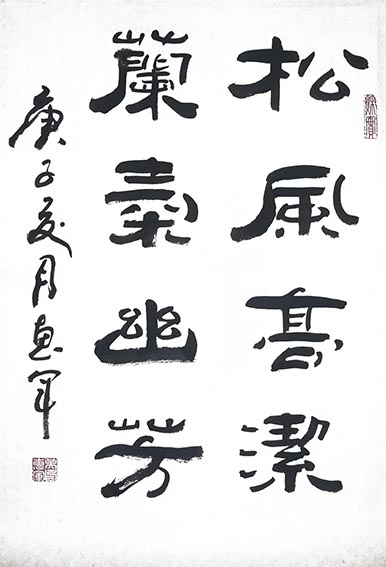 松風高潔
蘭幽芳
庚子夏月惠军